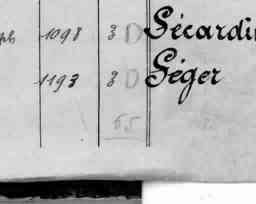 1098 3 D Sécardi
1193 3 D Séger
55